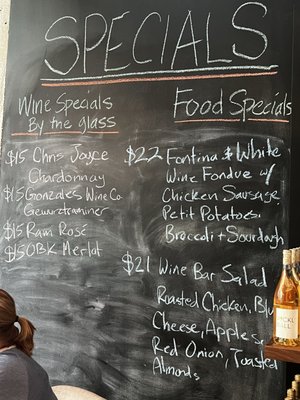 SPECIALS
Wine Specials
By the glass
$15 Chris Joyce
Chardonnay
$15 Gonzales Wine Co.
Gewurztraminer
$15 Ram Rosé
$15 OBK Merlot
Food Specials
$22 Fontina & White
Wine Fondue w/
Chicken Sausage
Petit Potatoes
Brocoli + Sourdough
$21 Wine Bar Salad
Roasted Chicken, Blu
Cheese, Apples
Red Onion, Toasted
Almonds